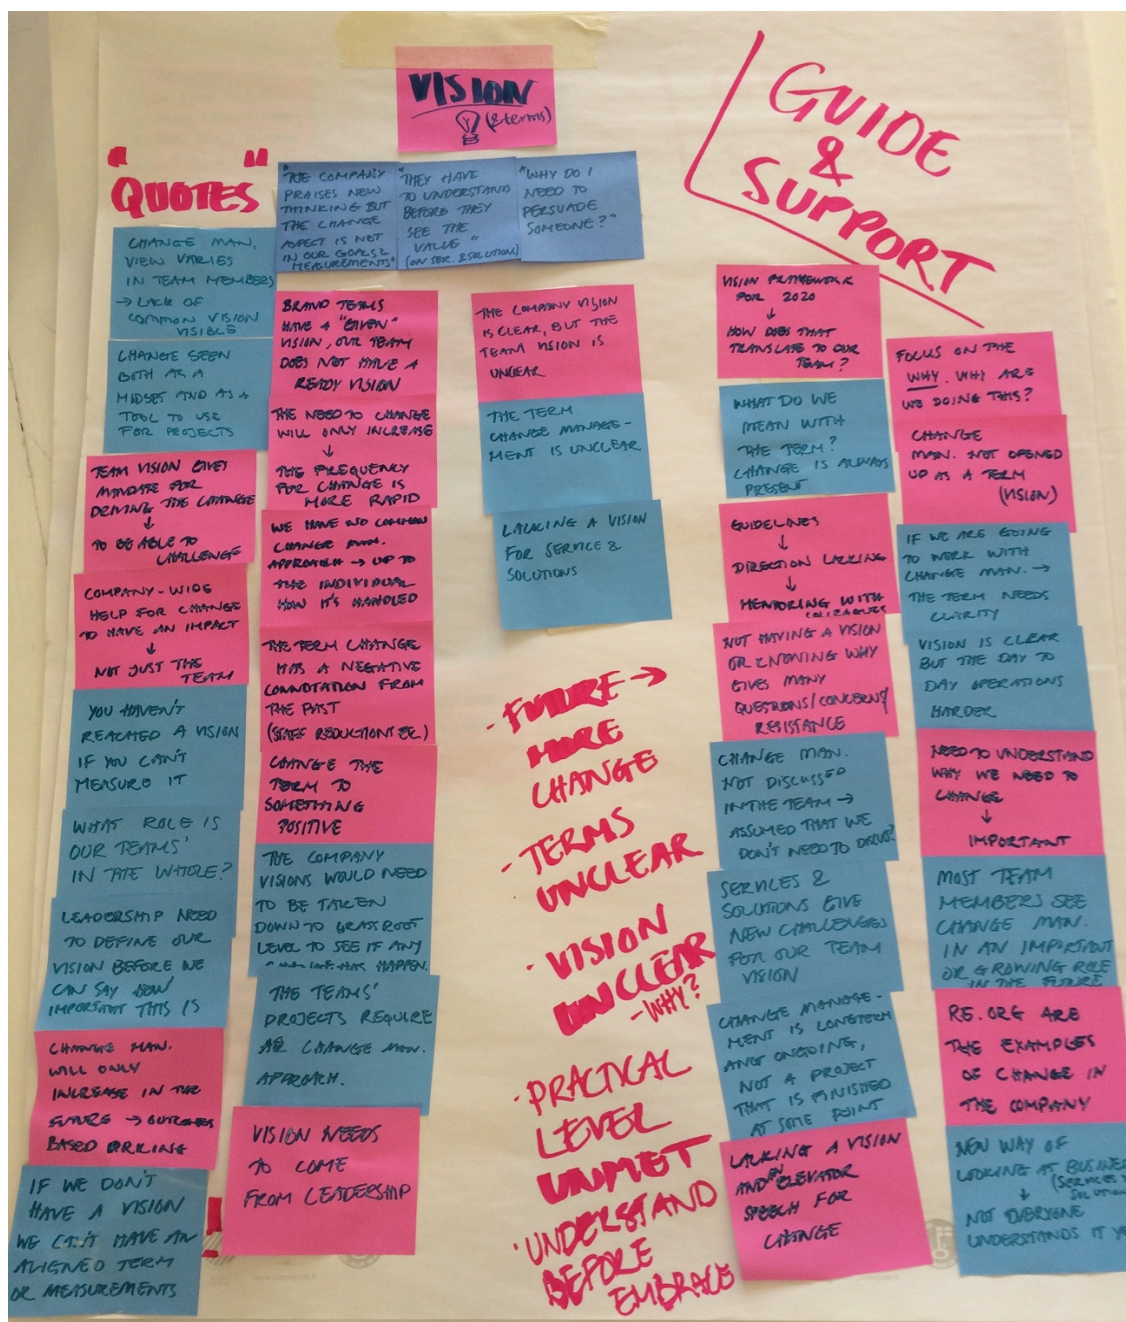 VISION
(& terms)
GUIDE
&
SUPPORT
" "
QUOTES
"THE COMPANY
PRAISES NEW
THINKING BUT
THE CHANGE
ASPECT IS NOT
IN OUR GOALS &
MEASUREMENTS"
"THEY HAVE
TO UNDERSTAND
BEFORE THEY
SEE THE
VALUE"
(ON SER. & SOLUTION)
"WHY DO I
NEED TO
PERSUADE
SOMEONE?"
CHANGE MAN.
VIEW VARIES
IN TEAM MEMBERS
→ LACK OF
COMMON VISION
VISIBLE
CHANGE SEEN
BOTH AS A
MIDSET AND AS A
TOOL TO USE
FOR PROJECTS
TEAM VISION GIVES
MANDATE FOR
DRIVING THE CHANGE
↓
TO BE ABLE TO
CHALLENGE
COMPANY-WIDE
HELP FOR CHANGE
TO HAVE AN IMPACT
↓
NOT JUST THE
TEAM
YOU HAVEN'T
REACHED A VISION
IF YOU CAN'T
MEASURE IT
WHAT ROLE IS
OUR TEAMS'
IN THE WHOLE?
LEADERSHIP NEED
TO DEFINE OUR
VISION BEFORE WE
CAN SAY HOW
IMPORTANT THIS IS
CHANGE MAN.
WILL ONLY
INCREASE IN THE
FUTURE → OUTCOMES
BASED PRICING
IF WE DON'T
HAVE A VISION
WE CAN'T HAVE AN
ALIGNED TERM
OR MEASUREMENTS
BRAND TEAMS
HAVE A "GIVEN"
VISION, OUR TEAM
DOES NOT HAVE A
READY VISION
THE NEED TO CHANGE
WILL ONLY INCREASE
↓
THE FREQUENCY
FOR CHANGE IS
MORE RAPID
WE HAVE NO COMMON
CHANGE MAN.
APPROACH → UP TO
THE INDIVIDUAL
HOW IT'S HANDLED
THE TERM CHANGE
HAS A NEGATIVE
CONNOTATION FROM
THE PAST
(STAFF REDUCTIONS EC)
CHANGE THE
TERM TO
SOMETHING
POSITIVE
THE COMPANY
VISIONS WOULD NEED
TO BE TAKEN
DOWN TO GRASSROOT
LEVEL TO SEE IF ANY
HAPPEN.
THE TEAMS'
PROJECTS REQUIRE
CHANGE MAN.
APPROACH.
VISION NEEDS
TO COME
FROM LEADERSHIP
THE COMPANY VISION
IS CLEAR, BUT THE
TEAM VISION IS
UNCLEAR
THE TERM
CHANGE MANAGE-
MENT IS UNCLEAR
LACKING A VISION
FOR SERVICE &
SOLUTIONS
- FUTURE →
MORE
CHANGE
- TERMS
UNCLEAR
· VISION
UNCLEAR
- WHY?
· PRACTICAL
LEVEL
UNMET
· UNDERSTAND
BEFORE
EMBRACE
VISION FRAMEWORK
FOR 2020
↓
HOW DOES THAT
TRANSLATE TO OUR
TEAM?
WHAT DO WE
MEAN WITH
THE TERM?
CHANGE IS ALWAYS
PRESENT
GUIDELINES
↓
DIRECTION LACKING
↓
MENTORING WITH
COLLEAGUES
NOT HAVING A VISION
OR KNOWING WHY
GIVES MANY
QUESTIONS/CONCERNS/
RESISTANCE
CHANGE MAN.
NOT DISCUSSED
IN THE TEAM →
ASSUMED THAT WE
DON'T NEED TO
SERVICES &
SOLUTIONS GIVE
NEW CHALLENGES
FOR OUR TEAM
VISION
CHANGE MANAGE-
MENT IS LONGTERM
AND ONGOING,
NOT A PROJECT
THAT IS FINISHED
AT SOME POINT
LACKING A VISION
AND AN ELEVATOR
SPEECH FOR
CHANGE
FOCUS ON THE
WHY. WHY ARE
WE DOING THIS?
CHANGE
MAN. NOT OPENED
UP AS A TERM
(VISION)
IF WE ARE GOING
TO WORK WITH
CHANGE MAN. →
THE TERM NEEDS
CLARITY
VISION IS CLEAR
BUT THE DAY TO
DAY OPERATIONS
HARDER
NEED TO UNDERSTAND
WHY WE NEED TO
CHANGE
↓
IMPORTANT
MOST TEAM
MEMBERS SEE
CHANGE MAN.
IN AN IMPORTANT
OR GROWING ROLE
IN THE FUTURE
RE.ORG ARE
THE EXAMPLES
OF CHANGE IN
THE COMPANY
NEW WAY OF
LOOKING AT BUSINESS
(SERVICES &
↓
NOT EVERYONE
UNDERSTANDS IT